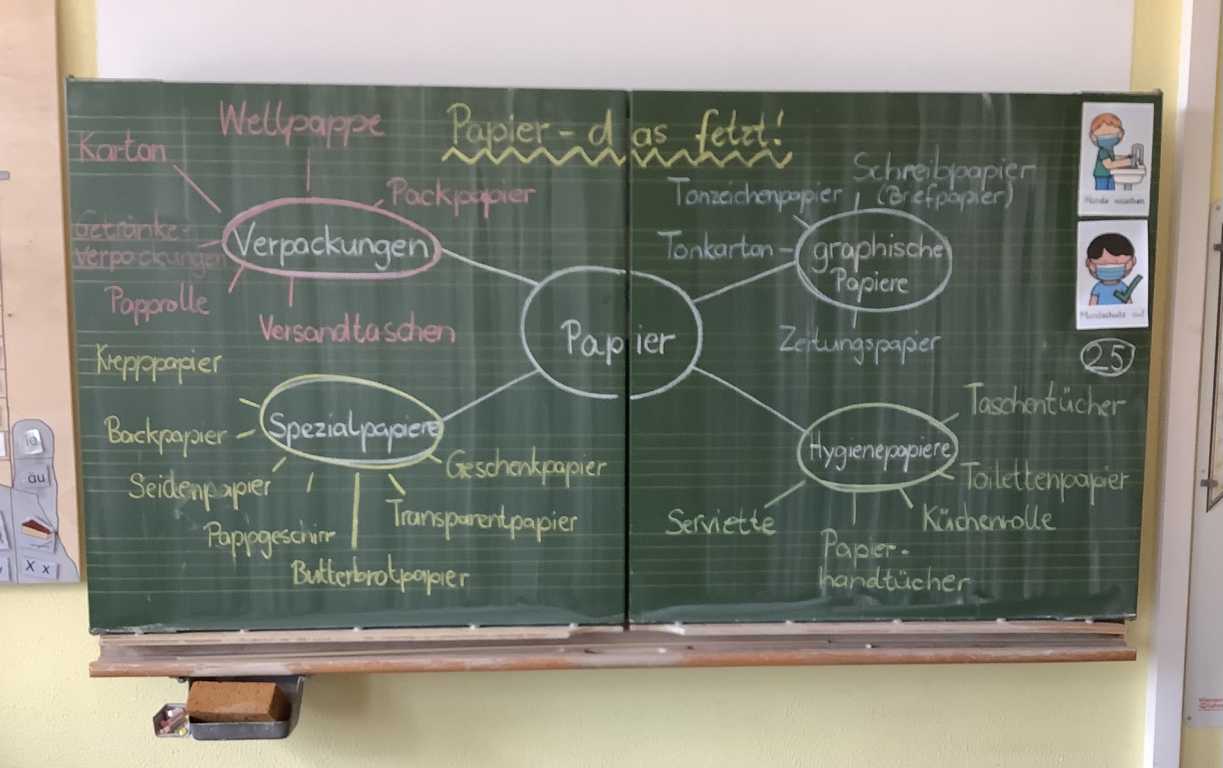 Papier - das fetzt!
Wellpappe
Karton
Packpapier
Getränke-
verpackungen
Verpackungen
Papprolle
Versandtaschen
Papier
Tonzeichenpapier
Schreibpapier
(Briefpapier)
Tonkarton
graphische
Papiere
Zeitungspapier
Krepppapier
Backpapier
Spezialpapiere
Seidenpapier
Geschenkpapier
Pappgeschirr
Transparentpapier
Butterbrotpapier
Taschentücher
Hygienepapiere
Toilettenpapier
Serviette
Küchenrolle
Papier-
handtücher
Hände waschen
Mundschutz auf
25
au
X x